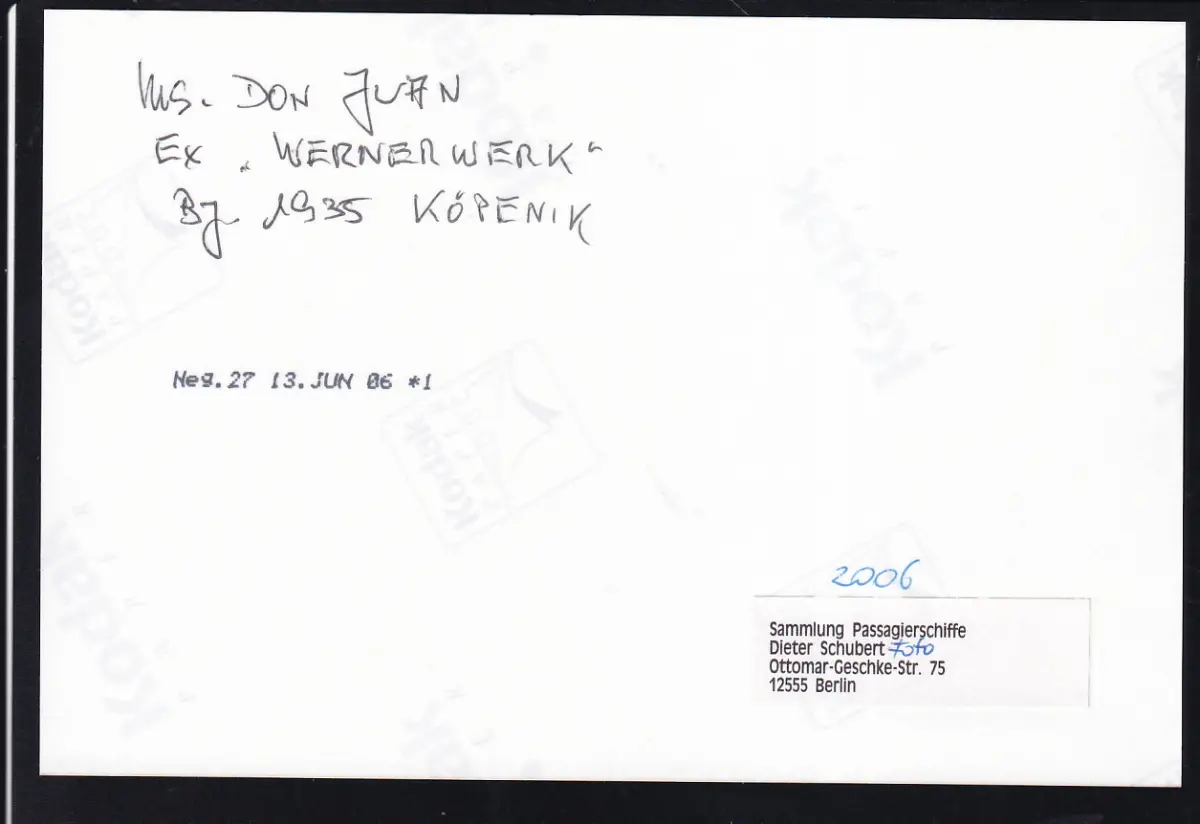 MS. DON JUAN
EX „WERNERWERK“
Bj. 1935 KÖPENIK
Neg.27 13.JUN 06 *1
2006
Sammlung Passagierschiffe
Dieter Schubert Foto
Ottomar-Geschke-Str. 75
12555 Berlin
Kodak
Kodak
Kodak
Kodak